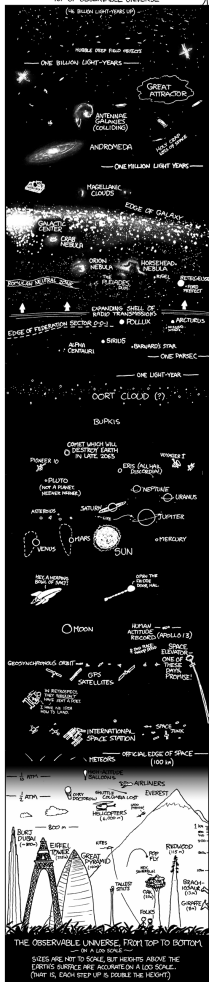 TOP OF OBSERVABLE UNIVERSE
(46 BILLION LIGHT-YEARS UP)
HUBBLE DEEP FIELD OBJECTS
ONE BILLION LIGHT-YEARS
GREAT
ATTRACTOR
ANTENNAE
GALAXIES
(COLLIDING)
HOLY CRAP
LOTS OF SPACE
ANDROMEDA
ONE MILLION LIGHT YEARS
MAGELLANIC
CLOUDS
EDGE OF GALAXY
GALACTIC
CENTER
CRAB
NEBULA
ORION
NEBULA
HORSEHEAD
NEBULA
RIGEL
THE
PLEIADES
BETELGEUSE
FORD
PREFECT
ROMULAN NEUTRAL ZONE
EXPANDING SHELL OF
RADIO TRANSMISSIONS
POLLUX
ARCTURUS
EDGE OF FEDERATION SECTOR 0-0-1
SIRIUS
ALPHA
CENTAURI
BARNARD'S STAR
ONE PARSEC
ONE LIGHT-YEAR
OORT CLOUD (?)
BUPKIS
COMET WHICH WILL
DESTROY EARTH
IN LATE 2063
PIONEER 10
VOYAGER I
ERIS (ALL HAIL
DISCORDIA)
PLUTO
(NOT A PLANET
NEENER NEENER)
NEPTUNE
URANUS
SATURN
JUPITER
ASTEROIDS
MARS
VENUS
SUN
MERCURY
OPEN THE
DOOR, HAL.
MOON
HUMAN
ALTITUDE
RECORD (APOLLO 13)
SPACE
ELEVATOR
ONE OF
THESE
DAYS,
PROMISE!
GEOSYNCHRONOUS ORBIT
GPS
SATELLITES
IN RETROSPECT,
THEY SHOULDN'T
HAVE SENT A POET.
I HAVE NO IDEA
HOW TO LAND.
INTERNATIONAL
SPACE STATION
SPACE
JUNK
OFFICIAL EDGE OF SPACE
(100 km)
METEORS
BALLOONS
AIRLINERS
CORY
DOCTOROW
SHUTTLE
COLUMBIA LOST
EVEREST
HELICOPTERS
800 m
BURJ
DUBAI
EIFFEL
TOWER
KITES
GREAT
PYRAMID
POP
FLY
REDWOOD
(115 m)
TALLEST
STILTS
OAK
BRACH-
IOSAUR
(13m)
GIRAFFE
FOLKS
THE OBSERVABLE UNIVERSE, FROM TOP TO BOTTOM
ON A LOG SCALE
SIZES ARE NOT TO SCALE, BUT HEIGHTS ABOVE THE
EARTH'S SURFACE ARE ACCURATE ON A LOG SCALE.
(THAT IS, EACH STEP UP IS DOUBLE THE HEIGHT.)